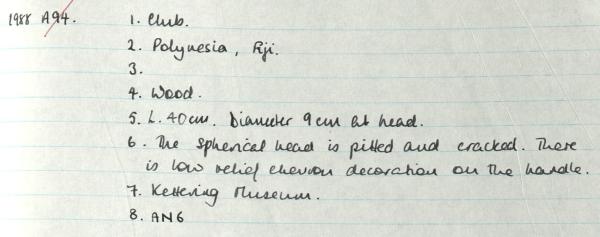 1988 A94. 1. Club.
2. Polynesia, Fiji.
3.
4. Wood.
5. L. 40cm. Diameter 9cm at head.
6. The spherical head is pitted and cracked. There
is low relief chevron decoration on the handle.
7. Kettering Museum.
8. AN6